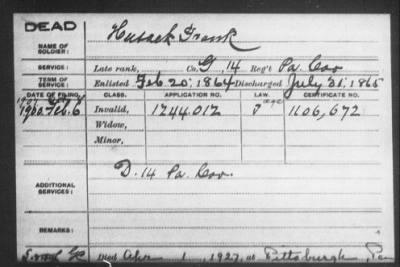 DEAD
NAME OF SOLDIER: Husack Frank
SERVICE: Late rank, Co. G, 14 Reg't Pa. Cav
TERM OF SERVICE: Enlisted Feb. 20, 1864 Discharged July 31, 1865
DATE OF FILING. CLASS. APPLICATION NO. LAW. CERTIFICATE NO.
1900. Feb. 6 Invalid, 1244.012 age 1106,672
Widow,
Minor,
ADDITIONAL SERVICES: D. 14 Pa. Cav.
REMARKS:
Died Apr 1, 1927, at Pittsburgh, Pa